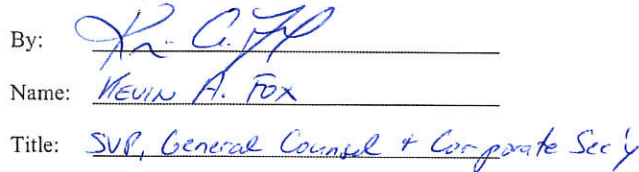 By:
Name: KEVIN A. FOX
Title: SVP, General Counsel + Corporate Sec'y